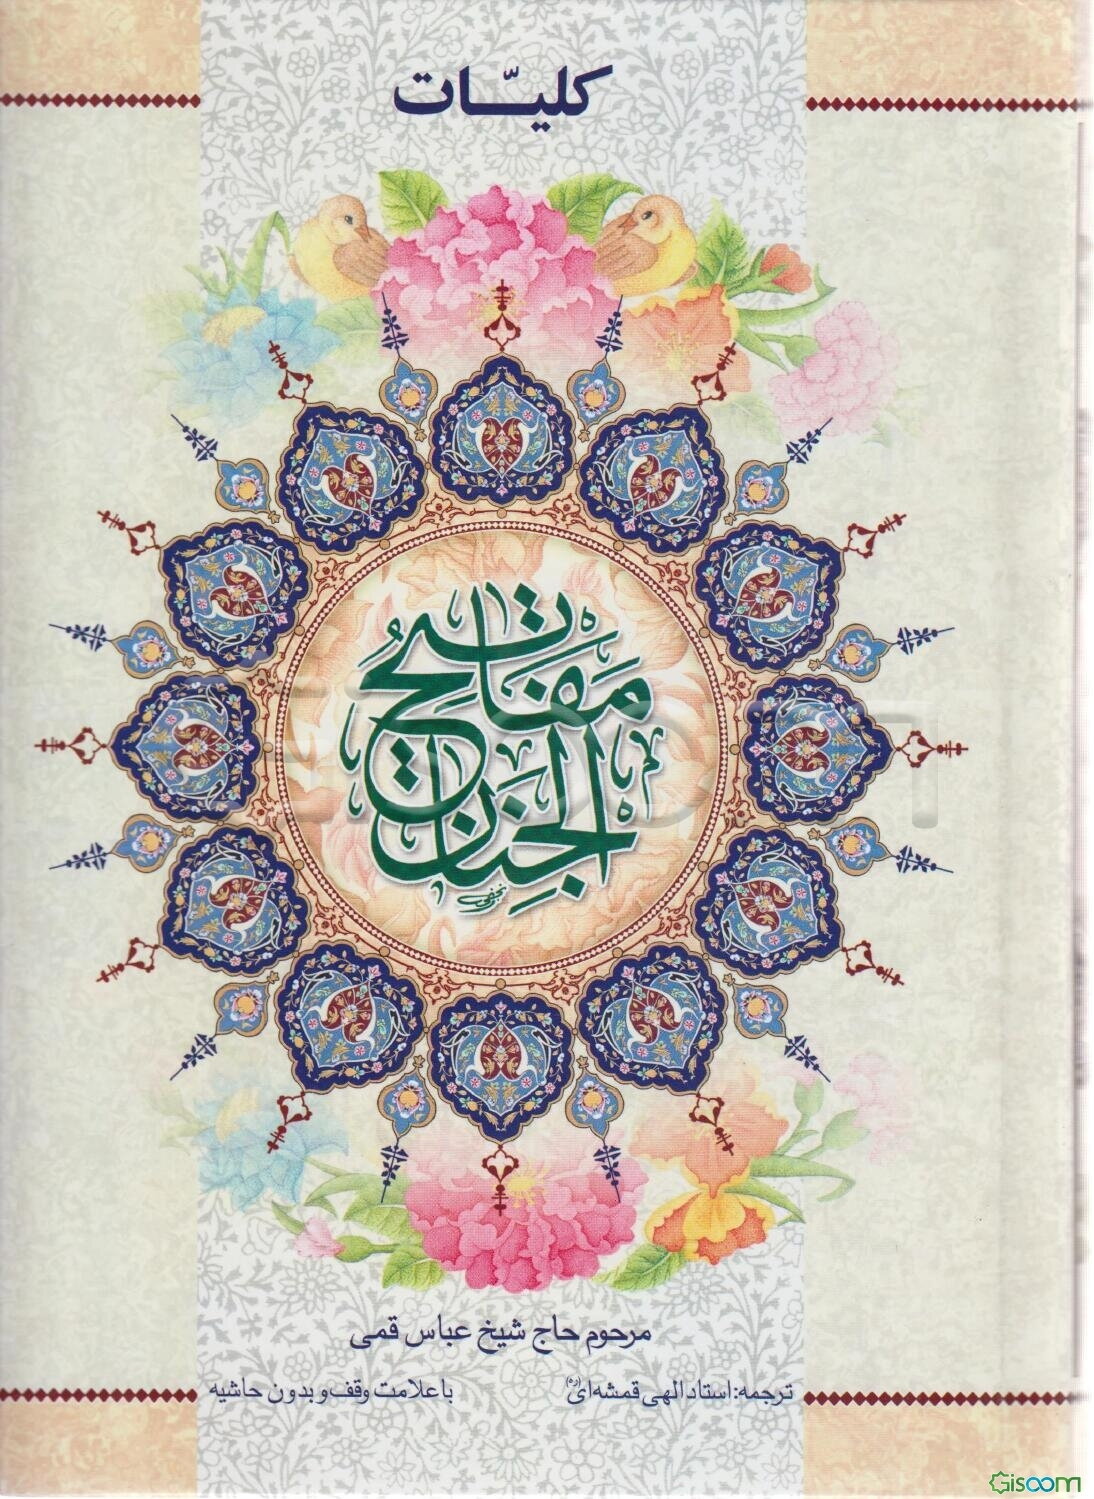 کلیّات
مفاتیح
الجنان
مرحوم حاج شیخ عباس قمی
ترجمه: استاد الهی قمشه‌ای (ره)
با علامت وقف و بدون حاشیه
Gisoom